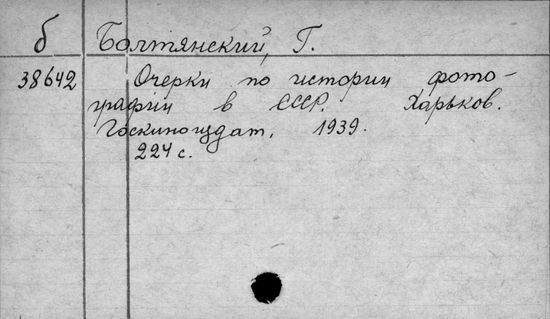 б Болтянский, Г.
38642 Очерки по истории фото-
графии в СССР. Харьков.
Госкиноиздат, 1939.
224 с.